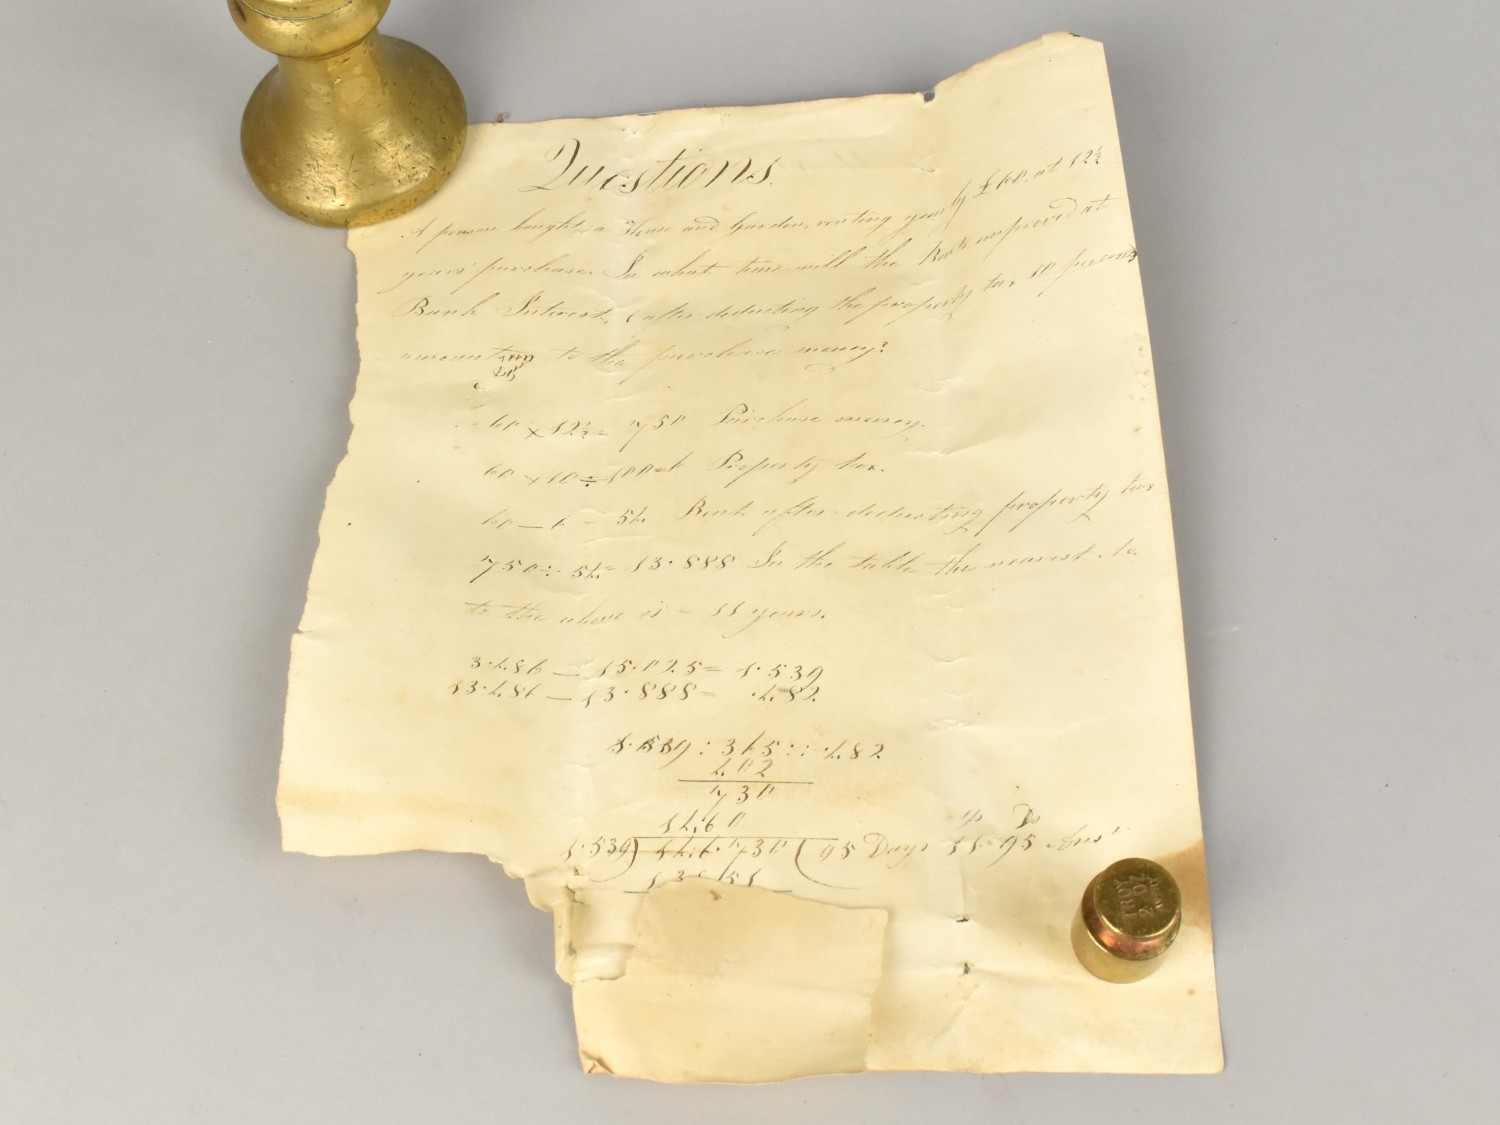 Questions.
A person bought a House and Garden, renting yearly £60. at 12½
years' purchase. In what time will the Rents improved at
Bank Interest, (after deducting the property tax 10 percent
amount to the purchase money?
60 × 12½ = 750 Purchase money.
60 × 10 ÷ 100 = 6 Property tax.
60 — 6 = 54 Rent after deducting property tax
750 ÷ 54 = 13.888 In the table the nearest No.
to the above is = 11 years.
3.486 — 15.025 = 1.539
13.486 — 13.888 = .482
1.539 : 365 :: .482
402
730
1460
1.539) 146.730 (95 Days 11 = 95 Ans'
13851
TROY
2 OZ